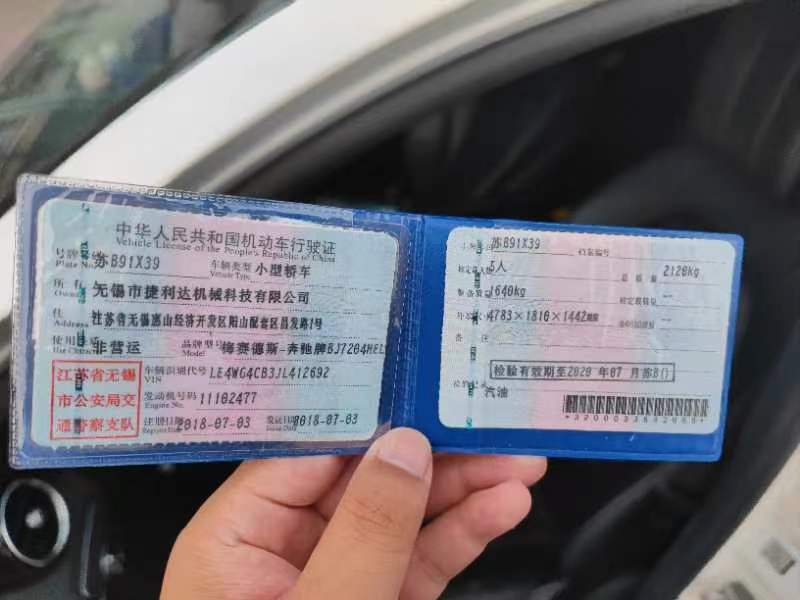 中华人民共和国机动车行驶证
Vehicle License of the People's Republic of China
号牌
Plate No.
苏B91X39
车辆类型
Vehicle Type
小型轿车
所 有
Owner
无锡市捷利达机械科技有限公司
住
Address
江苏省无锡惠山经济开发区阳山配套区昌发路1号
使用
Use Character
非营运
品牌型号
Model
梅赛德斯-奔驰牌BJ7204HEL
江苏省无锡
市公安局交
通警察支队
车辆识别代号
VIN
LE4WG4CB3JL412692
发动机号码
Engine No.
11102477
注册日期
Register Date
2018-07-03
发证日期
Issue Date
2018-07-03
苏B91X39
档案编号
5人
总 质 量
2120kg
整备质量
1640kg
4783×1810×1442
备 注
检验有效期至2020 年 07 月 苏B
检验记录
汽油